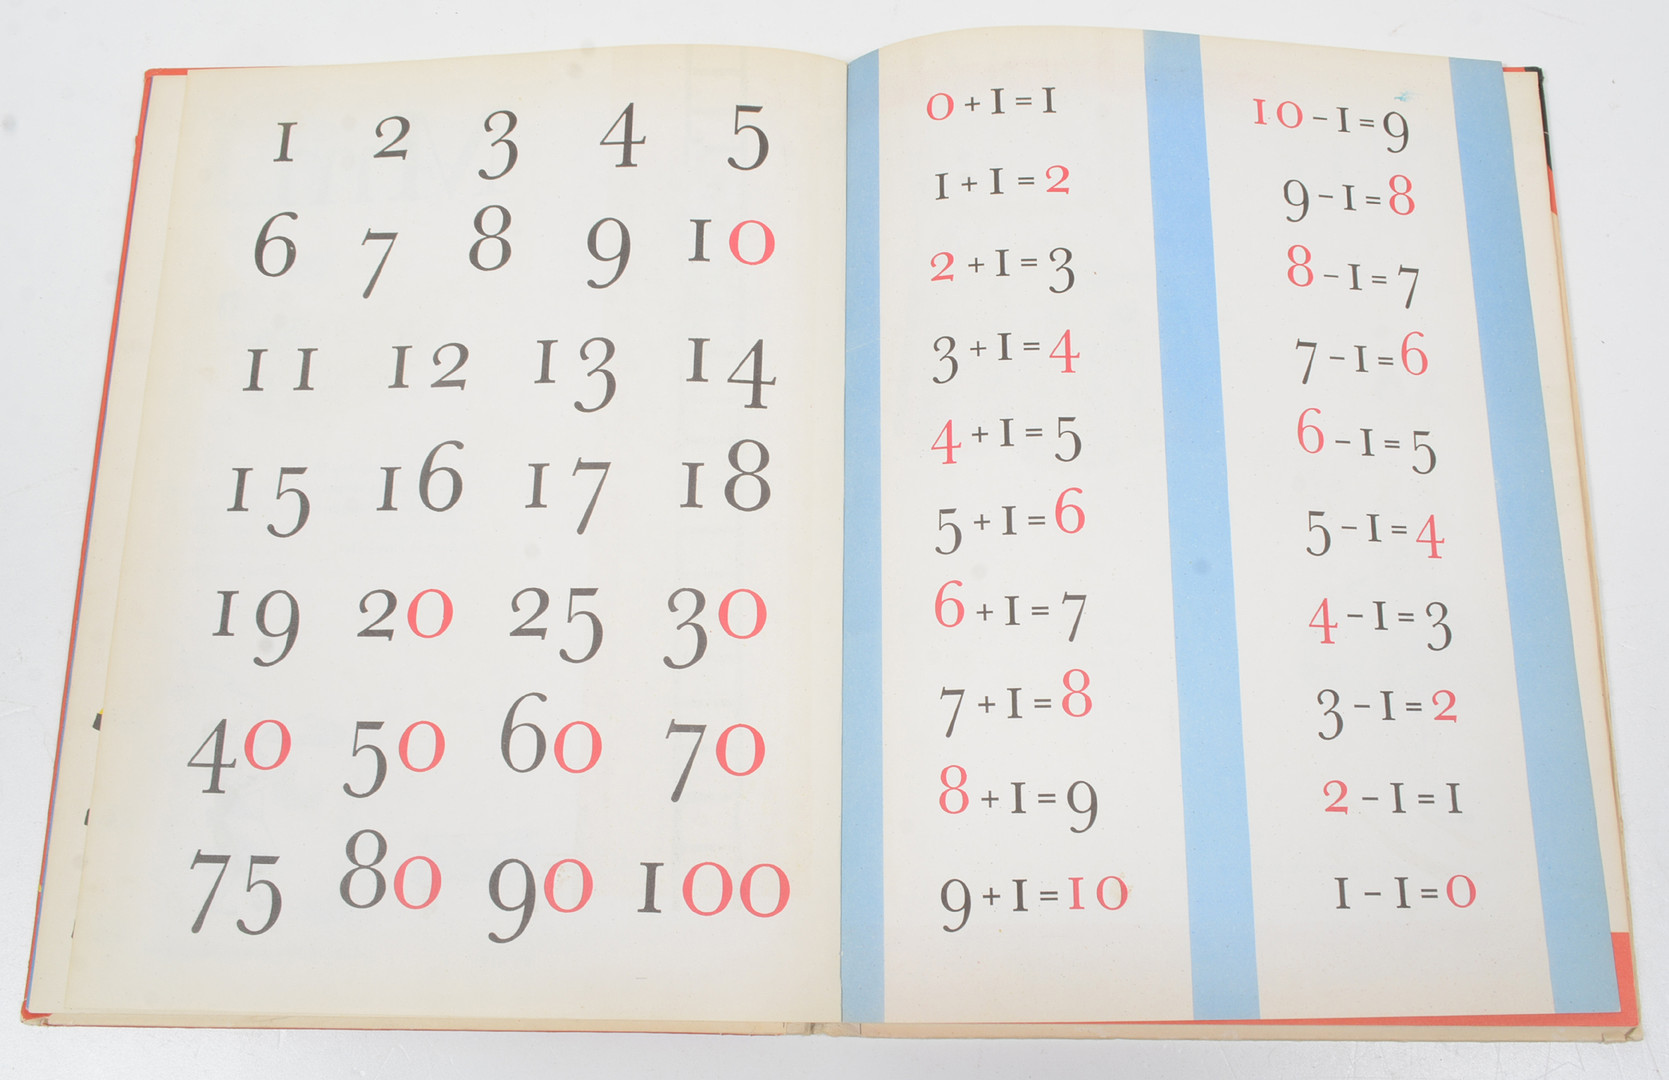 1 2 3 4 5
6 7 8 9 10
11 12 13 14
15 16 17 18
19 20 25 30
40 50 60 70
75 80 90 100
0+1=1
1+1=2
2+1=3
3+1=4
4+1=5
5+1=6
6+1=7
7+1=8
8+1=9
9+1=10
10-1=9
9-1=8
8-1=7
7-1=6
6-1=5
5-1=4
4-1=3
3-1=2
2-1=1
1-1=0